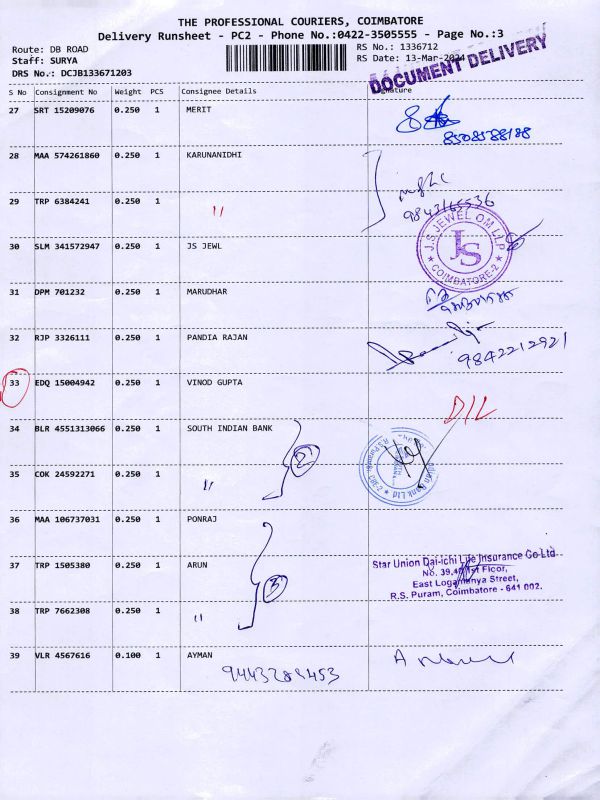 THE PROFESSIONAL COURIERS, COIMBATORE
Delivery Runsheet - PC2 - Phone No.:0422-3505555 - Page No.:3
Route: DB ROAD
Staff: SURYA
DRS No.: DCJB133671203
RS No.: 1336712
RS Date: 13-Mar-2024
DOCUMENT DELIVERY
S No Consignment No Weight PCS Consignee Details Signature
27 SRT 15209076 0.250 1 MERIT
8508588188
28 MAA 574261860 0.250 1 KARUNANIDHI
29 TRP 6384241 0.250 1 11
9843165536
30 SLM 341572947 0.250 1 JS JEWL
J.S JEWEL OM LLP
JS
COIMBATORE-2
31 DPM 701232 0.250 1 MARUDHAR
32 RJP 3326111 0.250 1 PANDIA RAJAN
9842212921
33 EDQ 15004942 0.250 1 VINOD GUPTA
D/L
34 BLR 4551313066 0.250 1 SOUTH INDIAN BANK
2
35 COK 24592271 0.250 1 11
36 MAA 106737031 0.250 1 PONRAJ
37 TRP 1505380 0.250 1 ARUN
3
Star Union Dai-ichi Life Insurance Co Ltd
No. 39,40 1st Floor,
East Logamanya Street,
R.S. Puram, Coimbatore - 641 002.
38 TRP 7662308 0.250 1 11
39 VLR 4567616 0.100 1 AYMAN
9443289453